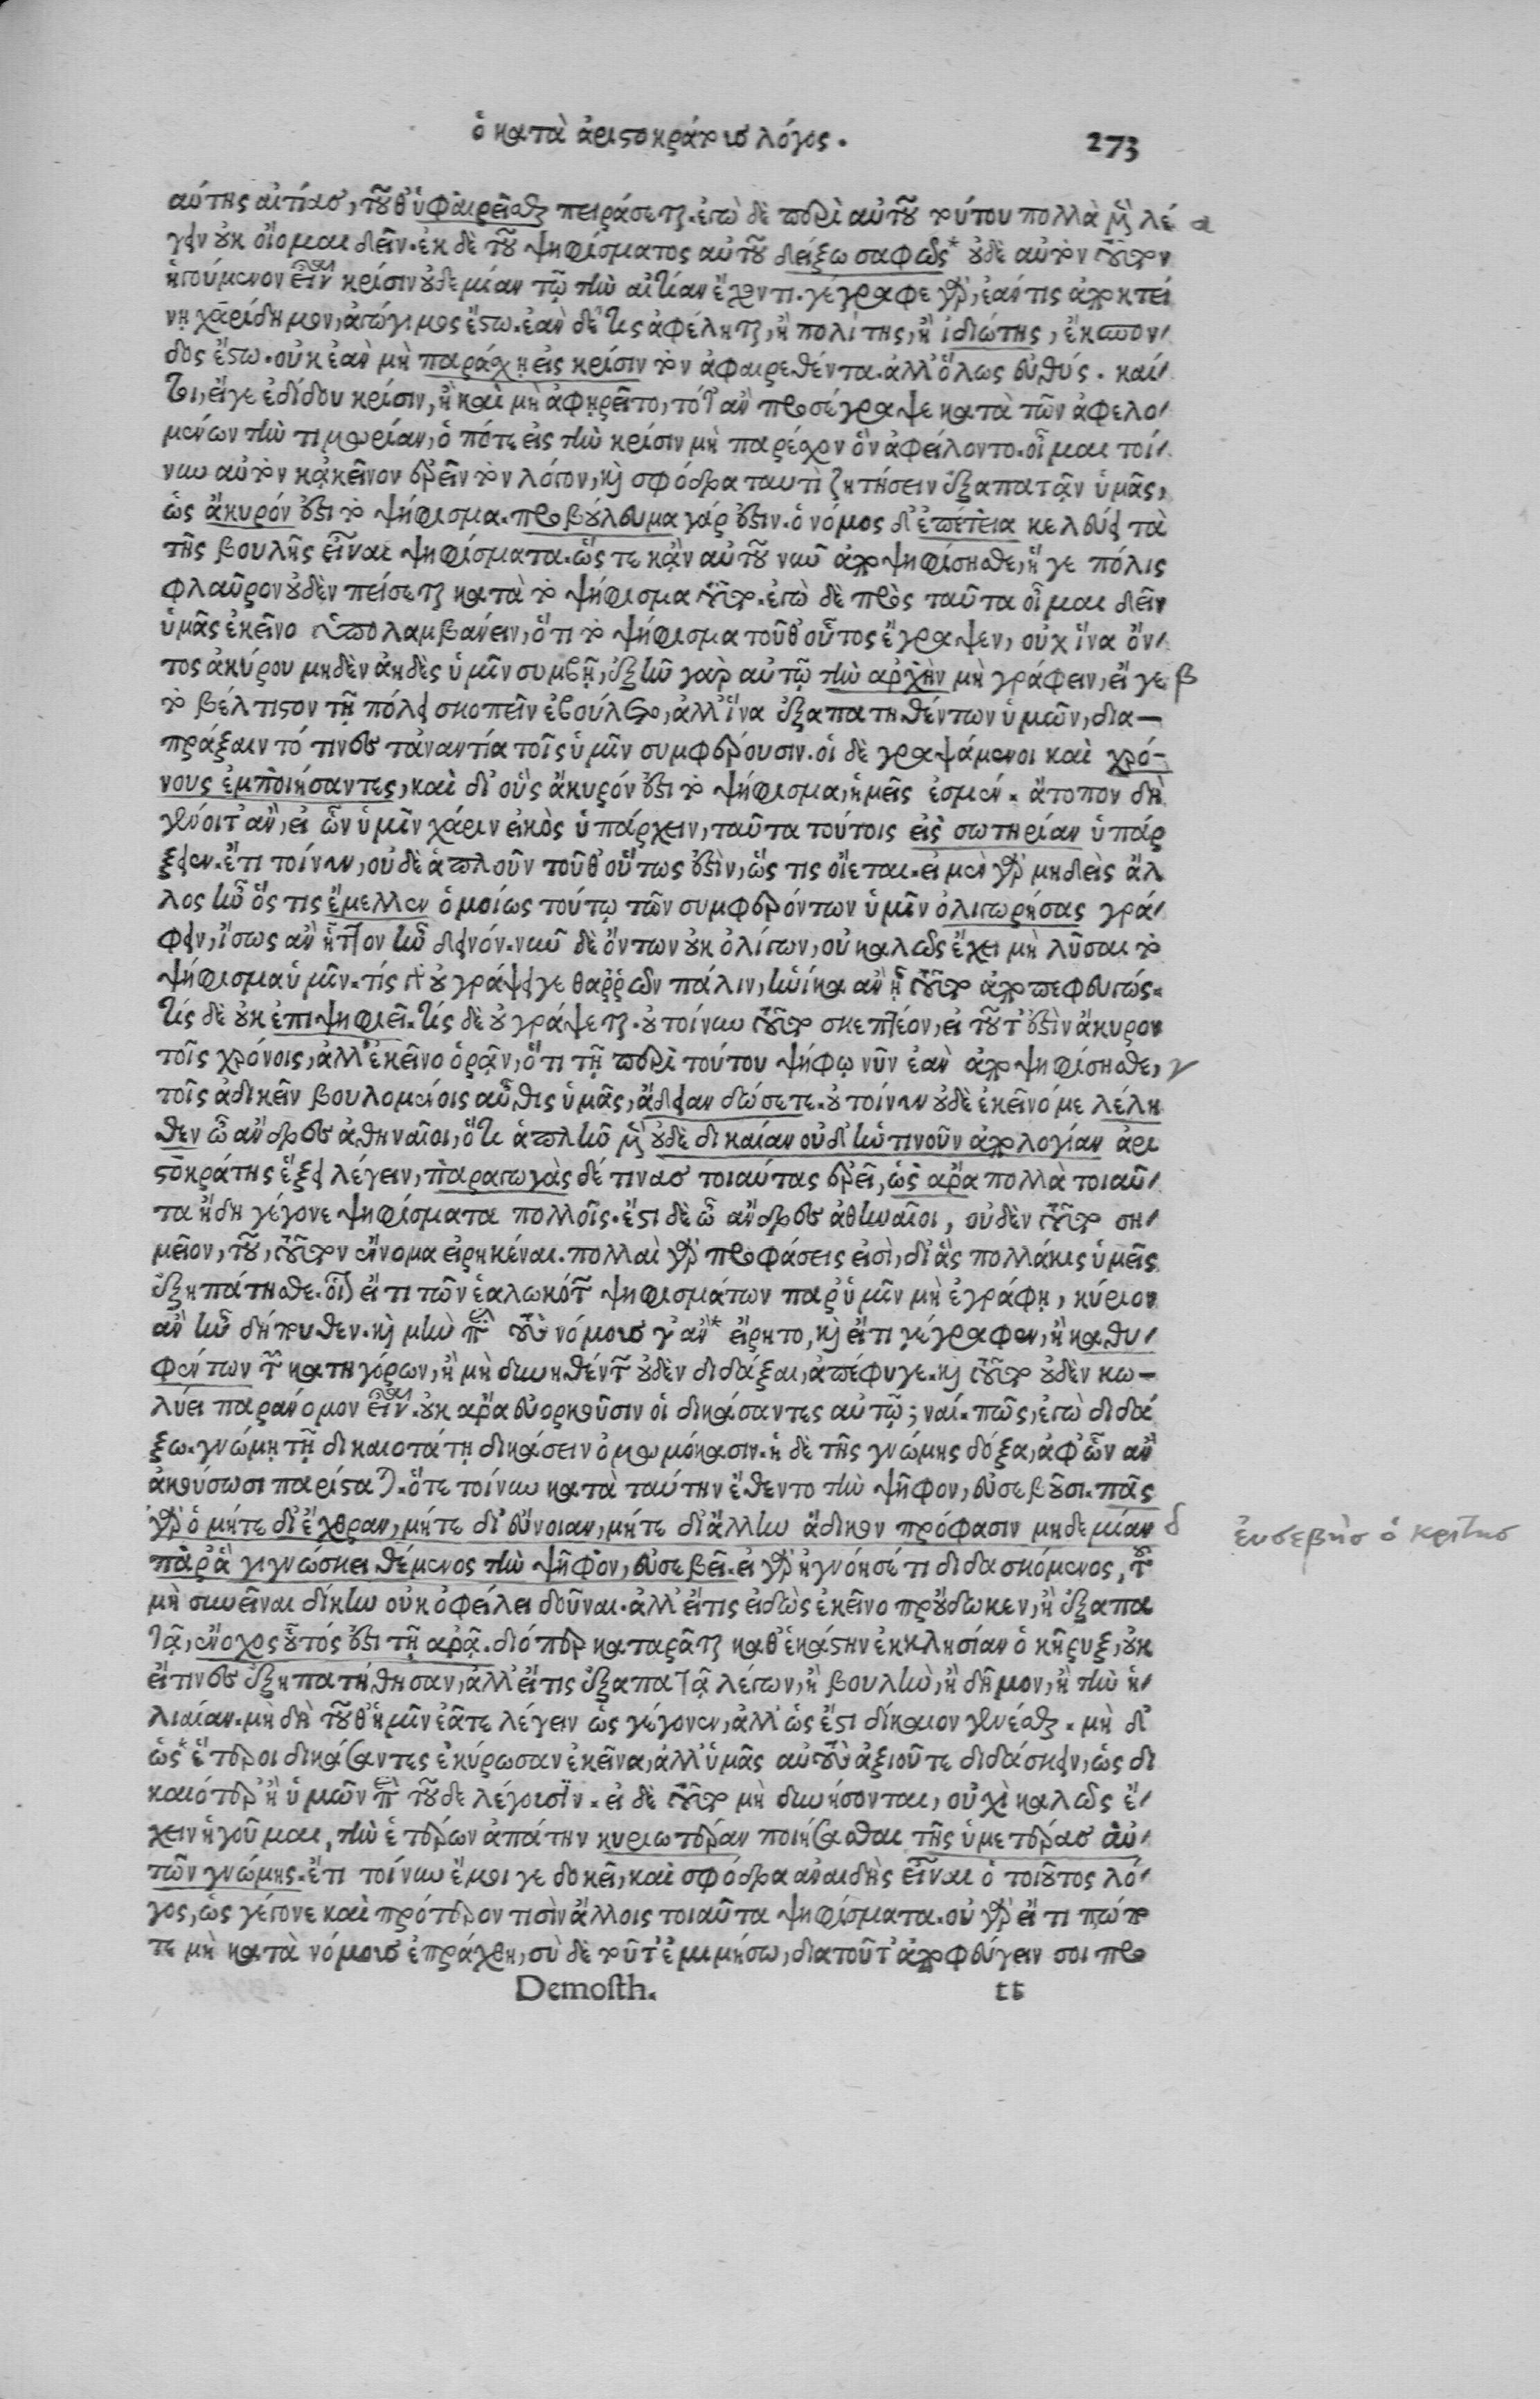 ὁ κατὰ ἀριστοκράτους λόγος. 273
αύτης αἰτίας, τοῦθ' ὑφαιρεῖσθαι πειράσεται. ἐγὼ δὲ περὶ αὐτοῦ τούτου πολλὰ μὲν λέ α
γειν οὐκ οἴομαι δεῖν. ἐκ δὲ τοῦ ψηφίσματος αὐτοῦ δείξω σαφῶς* οὐδὲ αὐτὸν τοῦτον
ἡγούμενον εἶναι κρίσιν οὐδεμίαν τῷ τὴν αἰτίαν ἔχοντι. γέγραφε γὰρ, ἐάν τις ἀποκτεί
νῃ χαρίδημον, ἀγώγιμος ἔστω. ἐὰν δέ τις ἀφέληται, ἢ πολίτης, ἢ ἰδιώτης, ἔκσπον/
δος ἔστω. οὐκ ἐὰν μὴ παράσχῃ εἰς κρίσιν τὸν ἀφαιρεθέντα. ἀλλ' ὅλως εὐθύς. καί/
τοι, εἴγε ἐδίδου κρίσιν, ἢ καὶ μὴ ἀφῃρεῖτο, τότ' ἂν προσέγραψε κατὰ τῶν ἀφελο/
μένων τὴν τιμωρίαν, ὁπότε εἰς τὴν κρίσιν μὴ παρέσχον ὃν ἀφείλοντο. οἶμαι τοί/
νυν αὐτὸν κἀκεῖνον ἐρεῖν τὸν λόγον, καὶ σφόδρα ταυτὶ ζητήσειν ἐξαπατᾷν ὑμᾶς,
ὡς ἄκυρόν ἐστι τὸ ψήφισμα. προβούλευμα γάρ ἐστιν. ὁ νόμος δ' ἐπέτεια κελεύει τὰ
τῆς βουλῆς εἶναι ψηφίσματα. ὥς τε κᾂν αὐτοῦ νῦν ἀποψηφίσησθε, ἥ γε πόλις
φλαῦρον οὐδὲν πείσεται κατὰ τὸ ψήφισμα τοῦτο. ἐγὼ δὲ πρὸς ταῦτα οἶμαι δεῖν
ὑμᾶς ἐκεῖνο ὑπολαμβάνειν, ὅτι τὸ ψήφισμα τοῦθ' οὗτος ἔγραψεν, οὐχ ἵνα ὄν/
τος ἀκύρου μηδὲν ἀηδὲς ὑμῖν συμβῇ, ἐξῆν γὰρ αὐτῷ τὴν ἀρχὴν μὴ γράφειν, εἴ γε β
τὸ βέλτιστον τῇ πόλει σκοπεῖν ἐβούλετο, ἀλλ' ἵνα ἐξαπατηθέντων ὑμῶν, δια-
πράξαιντό τινες τἀναντία τοῖς ὑμῖν συμφέρουσιν. οἱ δὲ γραψάμενοι καὶ χρό-
νους ἐμποιήσαντες, καὶ δι' οὓς ἄκυρόν ἐστι τὸ ψήφισμα, ἡμεῖς ἐσμέν. ἄτοπον δὴ
γένοιτ' ἂν, εἰ ὧν ὑμῖν χάριν εἰκὸς ὑπάρχειν, ταῦτα τούτοις εἰς σωτηρίαν ὑπάρ
ξειεν. ἔτι τοίνυν, οὐδὲ ἁπλοῦν τοῦθ' οὕτως ἐστὶν, ὥς τις οἴεται. εἰ μὲν γὰρ μηδεὶς ἄλ
λος ἦν ὅς τις ἔμελλεν ὁμοίως τούτῳ τῶν συμφερόντων ὑμῖν ὀλιγωρήσας γρά/
φειν, ἴσως ἂν ἧττον ἦν δεινόν. νῦν δὲ ὄντων οὐκ ὀλίγων, οὐ καλῶς ἔχει μὴ λῦσαι τὸ
ψήφισμα ὑμῖν. τίς γὰρ οὐ γράψει γε θαῤῥῶν πάλιν, ἡνίκα ἂν ᾖ τοῦτο ἀποπεφευγός.
τίς δὲ οὐκ ἐπιψηφιεῖ. τίς δὲ οὐ γράψεται. οὐ τοίνυν τοῦτο σκεπτέον, εἰ τοῦτ' ἐστὶν ἄκυρον
τοῖς χρόνοις, ἀλλ' ἐκεῖνο ὁρᾷν, ὅτι τῇ περὶ τούτου ψήφῳ νῦν ἐὰν ἀποψηφίσησθε, γ
τοῖς ἀδικεῖν βουλομένοις αὖθις ὑμᾶς, ἄδειαν δώσετε. οὐ τοίνυν οὐδὲ ἐκεῖνό με λέλη
θεν ὦ ἄνδρες ἀθηναῖοι, ὅτι ἁπλῆν μὲν οὐδὲ δικαίαν οὐδ' ἡντινοῦν ἀπολογίαν ἀρι
στοκράτης ἕξει λέγειν, παραγωγὰς δέ τινας τοιαύτας ἐρεῖ, ὡς ἄρα πολλὰ τοιαῦ/
τα ἤδη γέγονε ψηφίσματα πολλοῖς. ἔστι δὲ ὦ ἄνδρες ἀθηναῖοι, οὐδὲν τοῦτο ση/
μεῖον, τοῦ, τοῦτον ἔννομα εἰρηκέναι. πολλαὶ γὰρ προφάσεις εἰσὶ, δι' ἃς πολλάκις ὑμεῖς
ἐξηπάτησθε. οἷον εἴ τι τῶν ἑαλωκότων ψηφισμάτων παρ' ὑμῖν μὴ ἐγράφη, κύριον
ἂν ἦν δήπουθεν. καὶ μὴν παρὰ τοὺς νόμους γ' ἂν* εἴρητο, καὶ εἴ τι γέγραφεν, ἢ καθυ/
φέντων τῶν κατηγόρων, ἢ μὴ δυνηθέντων οὐδὲν διδάξαι, ἀπέφυγε. καὶ τοῦτο οὐδὲν κω-
λύει παράνομον εἶναι. οὐκ ἄρα εὐορκοῦσιν οἱ δικάσαντες αὐτῷ; ναί. πῶς, ἐγὼ διδά
ξω. γνώμῃ τῇ δικαιοτάτῃ δικάσειν ὀμωμόκασιν. ἡ δὲ τῆς γνώμης δόξα, ἀφ' ὧν ἂν
ἀκούσωσι παρίσταται. ὅτε τοίνυν κατὰ ταύτην ἔθεντο τὴν ψῆφον, εὐσεβοῦσι. πᾶς
γὰρ ὁ μήτε δι' ἔχθραν, μήτε δι' εὔνοιαν, μήτε δι' ἄλλην ἄδικον πρόφασιν μηδεμίαν δ ἐυσεβὴς ὁ κριτης
παρ' ἃ γιγνώσκει θέμενος τὴν ψῆφον, εὐσεβεῖ. εἰ γὰρ ἠγνόησέ τι διδασκόμενος, τοῦ
μὴ συνεῖναι δίκην οὐκ ὀφείλει δοῦναι. ἀλλ' εἴτις εἰδὼς ἐκεῖνο προὔδωκεν, ἢ ἐξαπα
τᾷ, ἔνοχος οὗτός ἐστι τῇ ἀρᾷ. διόπερ καταρᾶται καθ' ἑκάστην ἐκκλησίαν ὁ κῆρυξ, οὐκ
εἴ τινες ἐξηπατήθησαν, ἀλλ' εἴτις ἐξαπατᾷ λέγων, ἢ βουλὴν, ἢ δῆμον, ἢ τὴν ἡ/
λιαίαν. μὴ δὴ τοῦθ' ἡμῖν ἐᾶτε λέγειν ὡς γέγονεν, ἀλλ' ὡς ἔστι δίκαιον γενέσθαι. μὴ δ'
ὡς* ἕτεροι δικάσαντες ἐκύρωσαν ἐκεῖνα, ἀλλ' ὑμᾶς αὐτοὺς ἀξιοῦτε διδάσκειν, ὡς δι
καιότερ' ἢ ὑμῶν περὶ τοῦδε λέγουσιν. εἰ δὲ τοῦτο μὴ δυνήσονται, οὐχὶ καλῶς ἔ/
χειν ἡγοῦμαι, τὴν ἑτέρων ἀπάτην κυριωτέραν ποιήσασθαι τῆς ὑμετέρας αὐ/
τῶν γνώμης. ἔτι τοίνυν ἔμοι γε δοκεῖ, καὶ σφόδρα ἀναιδὴς εἶναι ὁ τοιοῦτος λό/
γος, ὡς γέγονε καὶ πρότερον τισὶν ἄλλοις τοιαῦτα ψηφίσματα. οὐ γὰρ εἴ τι πώπο
τε μὴ κατὰ νόμους ἐπράχθη, σὺ δὲ τοῦτ' ἐμιμήσω, διατοῦτ' ἀποφεύγειν σοι προ
Demosth. tt